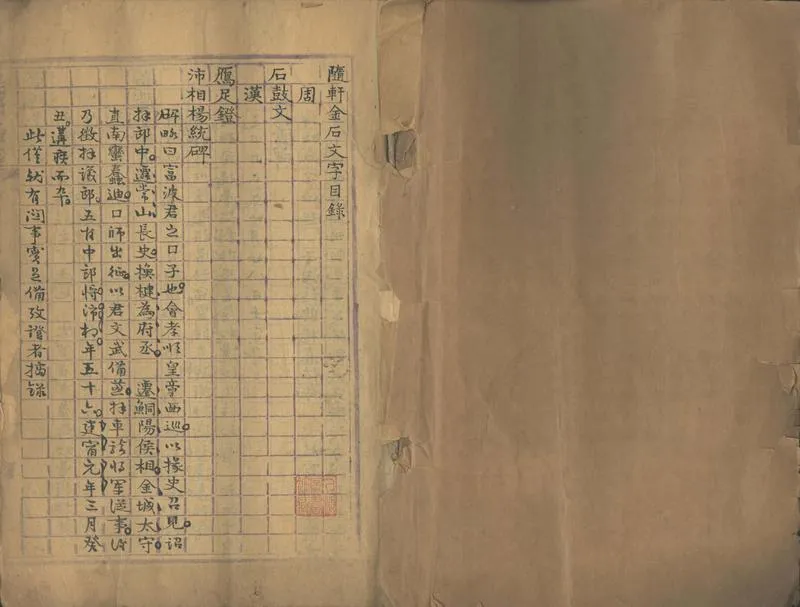 隨軒金石文字目錄
周
石鼓文
漢
鴈足鐙
沛相楊統碑
碑略曰富波君之口子也會孝順皇帝西巡以掾史召見詔
拜郎中遷常山長史換犍為府丞 遷鮦陽侯相金城太守
直南蠻蠢迪口師出征以君文武備兼拜車騎將軍從事以
乃徵拜議郎五官中郎將沛相年五十六建甯元年三月癸
丑遘疾而卒
此僅就有關事實足備攷證者摘錄